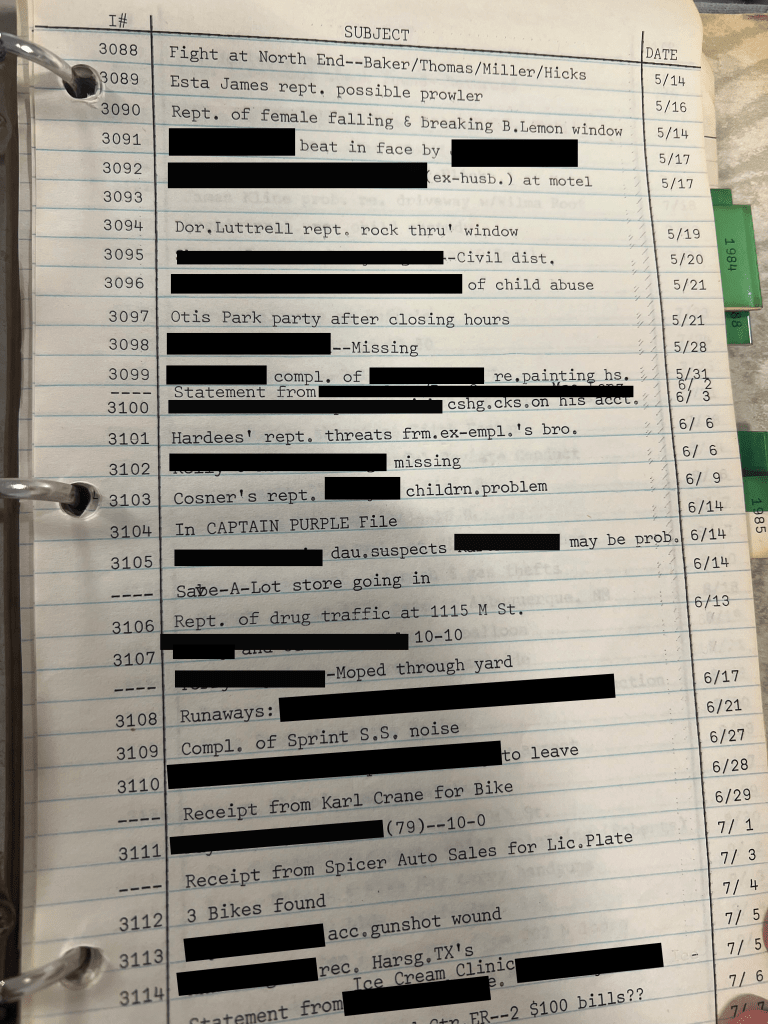 I# SUBJECT DATE
3088 Fight at North End--Baker/Thomas/Miller/Hicks 5/14
3089 Esta James rept. possible prowler 5/16
3090 Rept. of female falling & breaking B.Lemon window 5/14
3091 beat in face by 5/17
3092 (ex-husb.) at motel 5/17
3093
3094 Dor.Luttrell rept. rock thru' window 5/19
3095 --Civil dist. 5/20
3096 of child abuse 5/21
3097 Otis Park party after closing hours 5/21
3098 --Missing 5/28
3099 compl. of re.painting hs. 5/31
---- Statement from 6/ 2
3100 cshg.cks.on his acct. 6/ 3
3101 Hardees' rept. threats frm.ex-empl.'s bro. 6/ 6
3102 missing 6/ 6
3103 Cosner's rept. childrn.problem 6/ 9
3104 In CAPTAIN PURPLE File 6/14
3105 dau.suspects may be prob. 6/14
---- Save-A-Lot store going in 6/14
3106 Rept. of drug traffic at 1115 M St. 6/13
3107 and 10-10
---- -Moped through yard 6/17
3108 Runaways: 6/21
3109 Compl. of Sprint S.S. noise 6/27
3110 to leave 6/28
---- Receipt from Karl Crane for Bike 6/29
3111 (79)--10-0 7/ 1
---- Receipt from Spicer Auto Sales for Lic.Plate 7/ 3
3112 3 Bikes found 7/ 4
3113 acc.gunshot wound 7/ 5
3114 rec. Harsg.TX's 7/ 5
Ice Cream Clinic 7/ 6
Statement from
ER--2 $100 bills?? 7/ 7
1984
88
1985